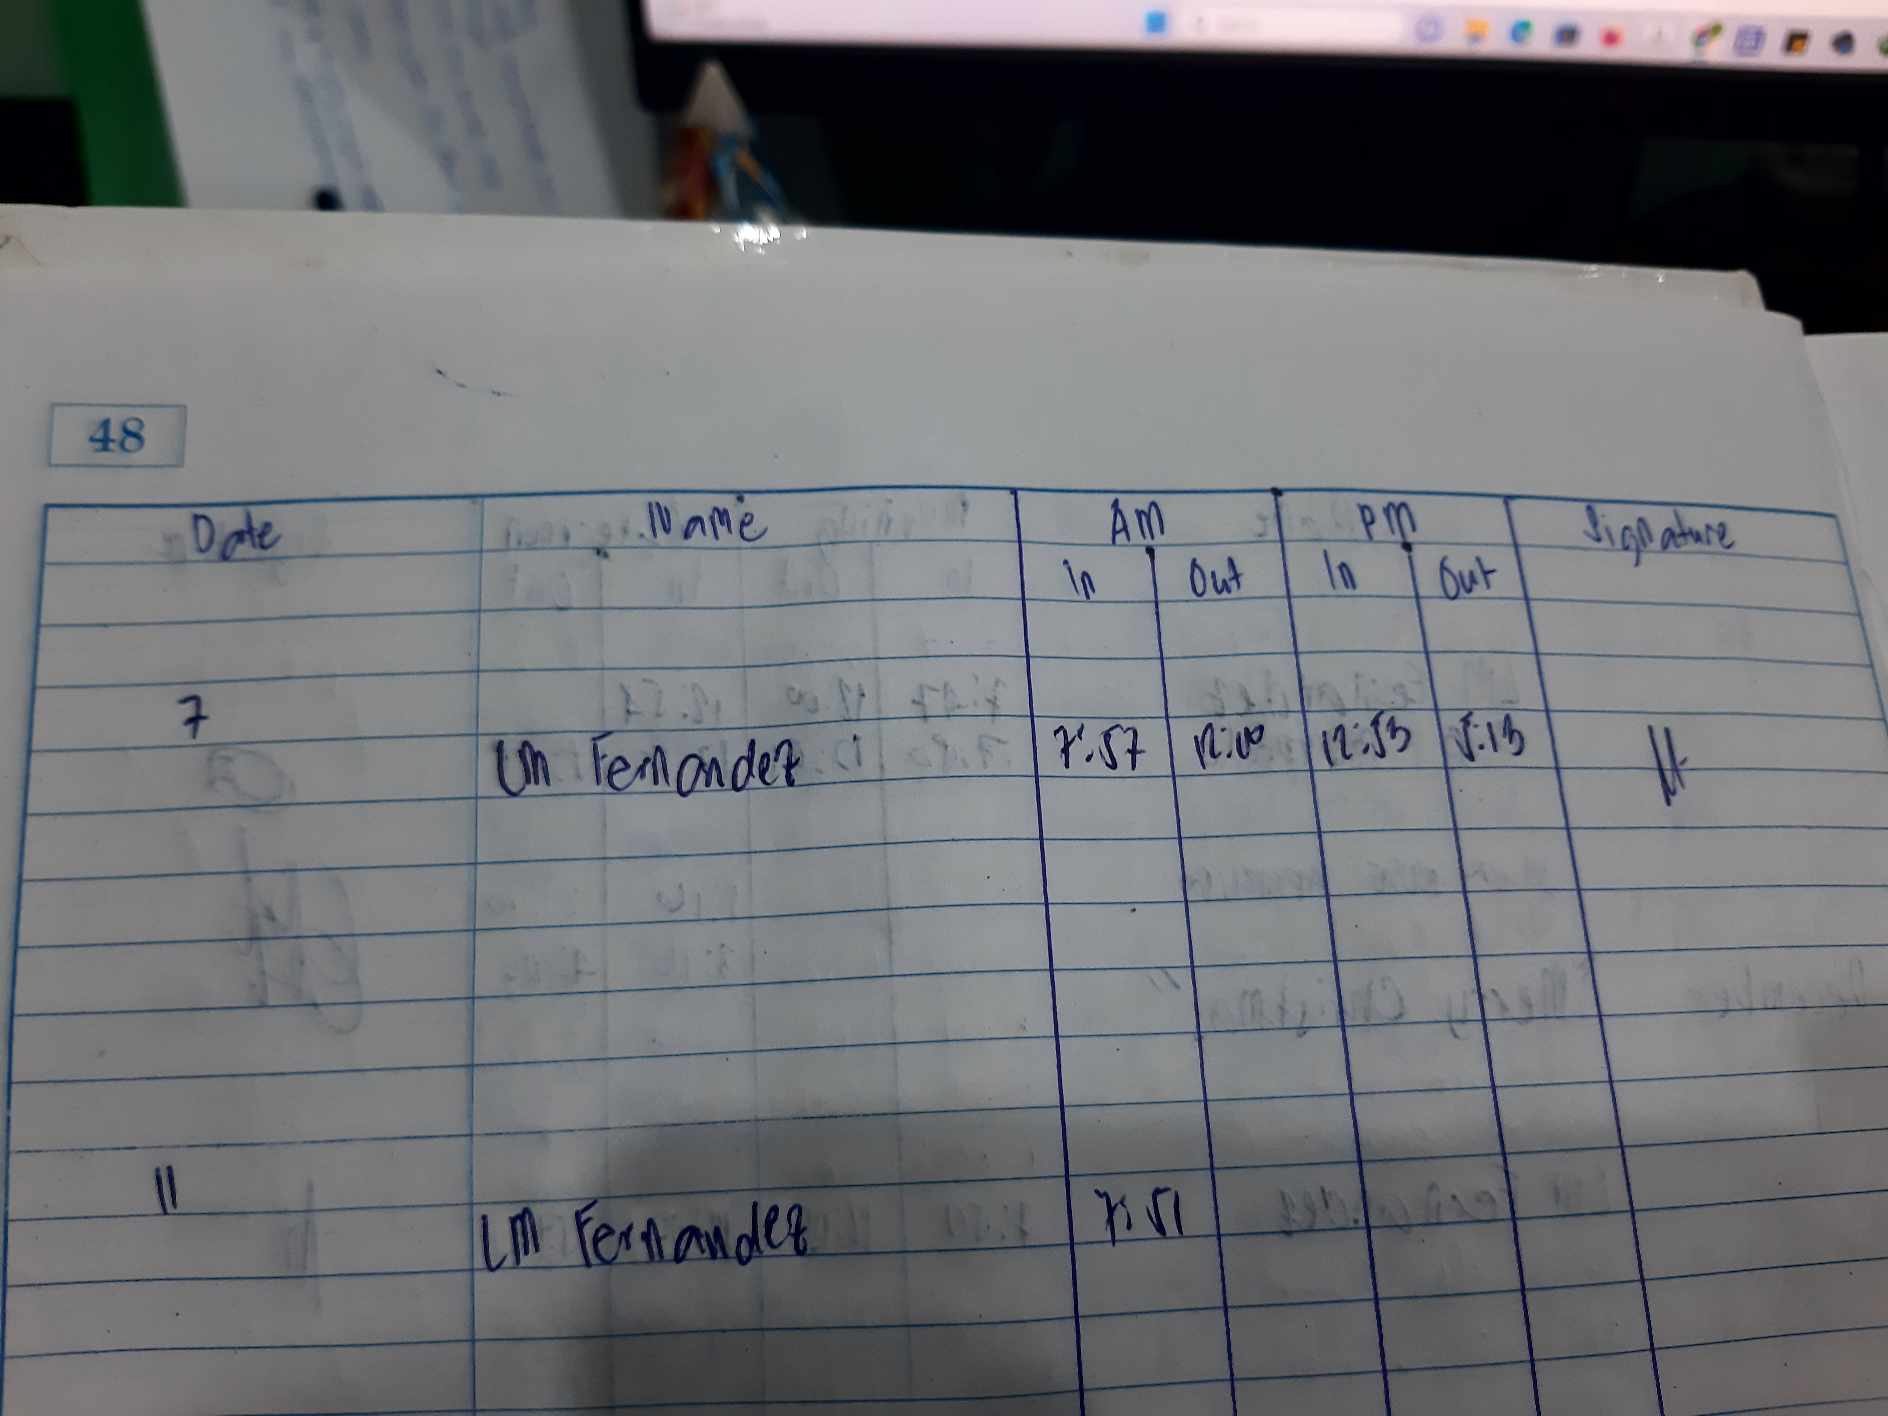 48
Date Name AM PM Signature
In Out In Out
7
LM Fernandez 7:57 12:00 12:53 5:13
11
LM Fernandez 7:51